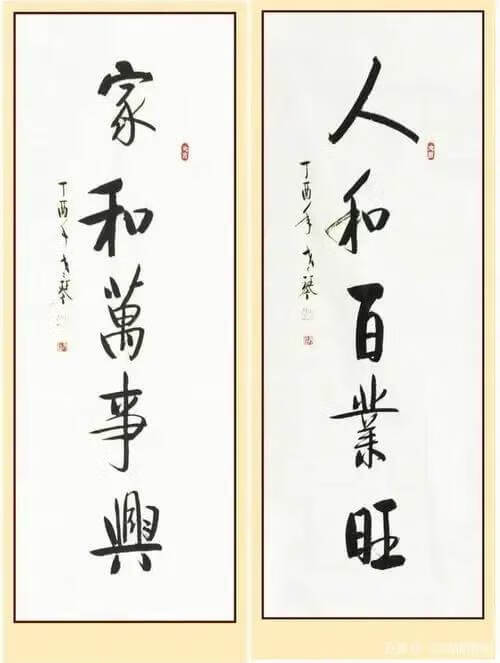 人和百業旺
丁酉年
家和萬事興
丁酉年